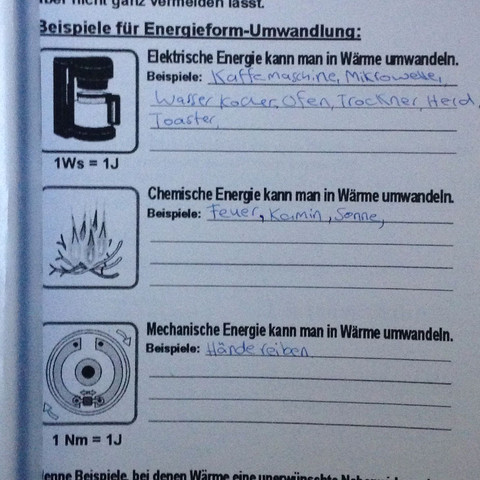 aber nicht ganz vermeiden lässt.
Beispiele für Energieform-Umwandlung:
Elektrische Energie kann man in Wärme umwandeln.
Beispiele: Kaffemaschine, Mikrowelle,
Wasser kocher, Ofen, Trockner, Herd,
Toaster,
1Ws = 1J
Chemische Energie kann man in Wärme umwandeln.
Beispiele: Feuer, Kamin, Sonne,
Mechanische Energie kann man in Wärme umwandeln.
Beispiele: Hände reiben
1 Nm = 1J
Nenne Beispiele, bei denen Wärme eine unerwünschte